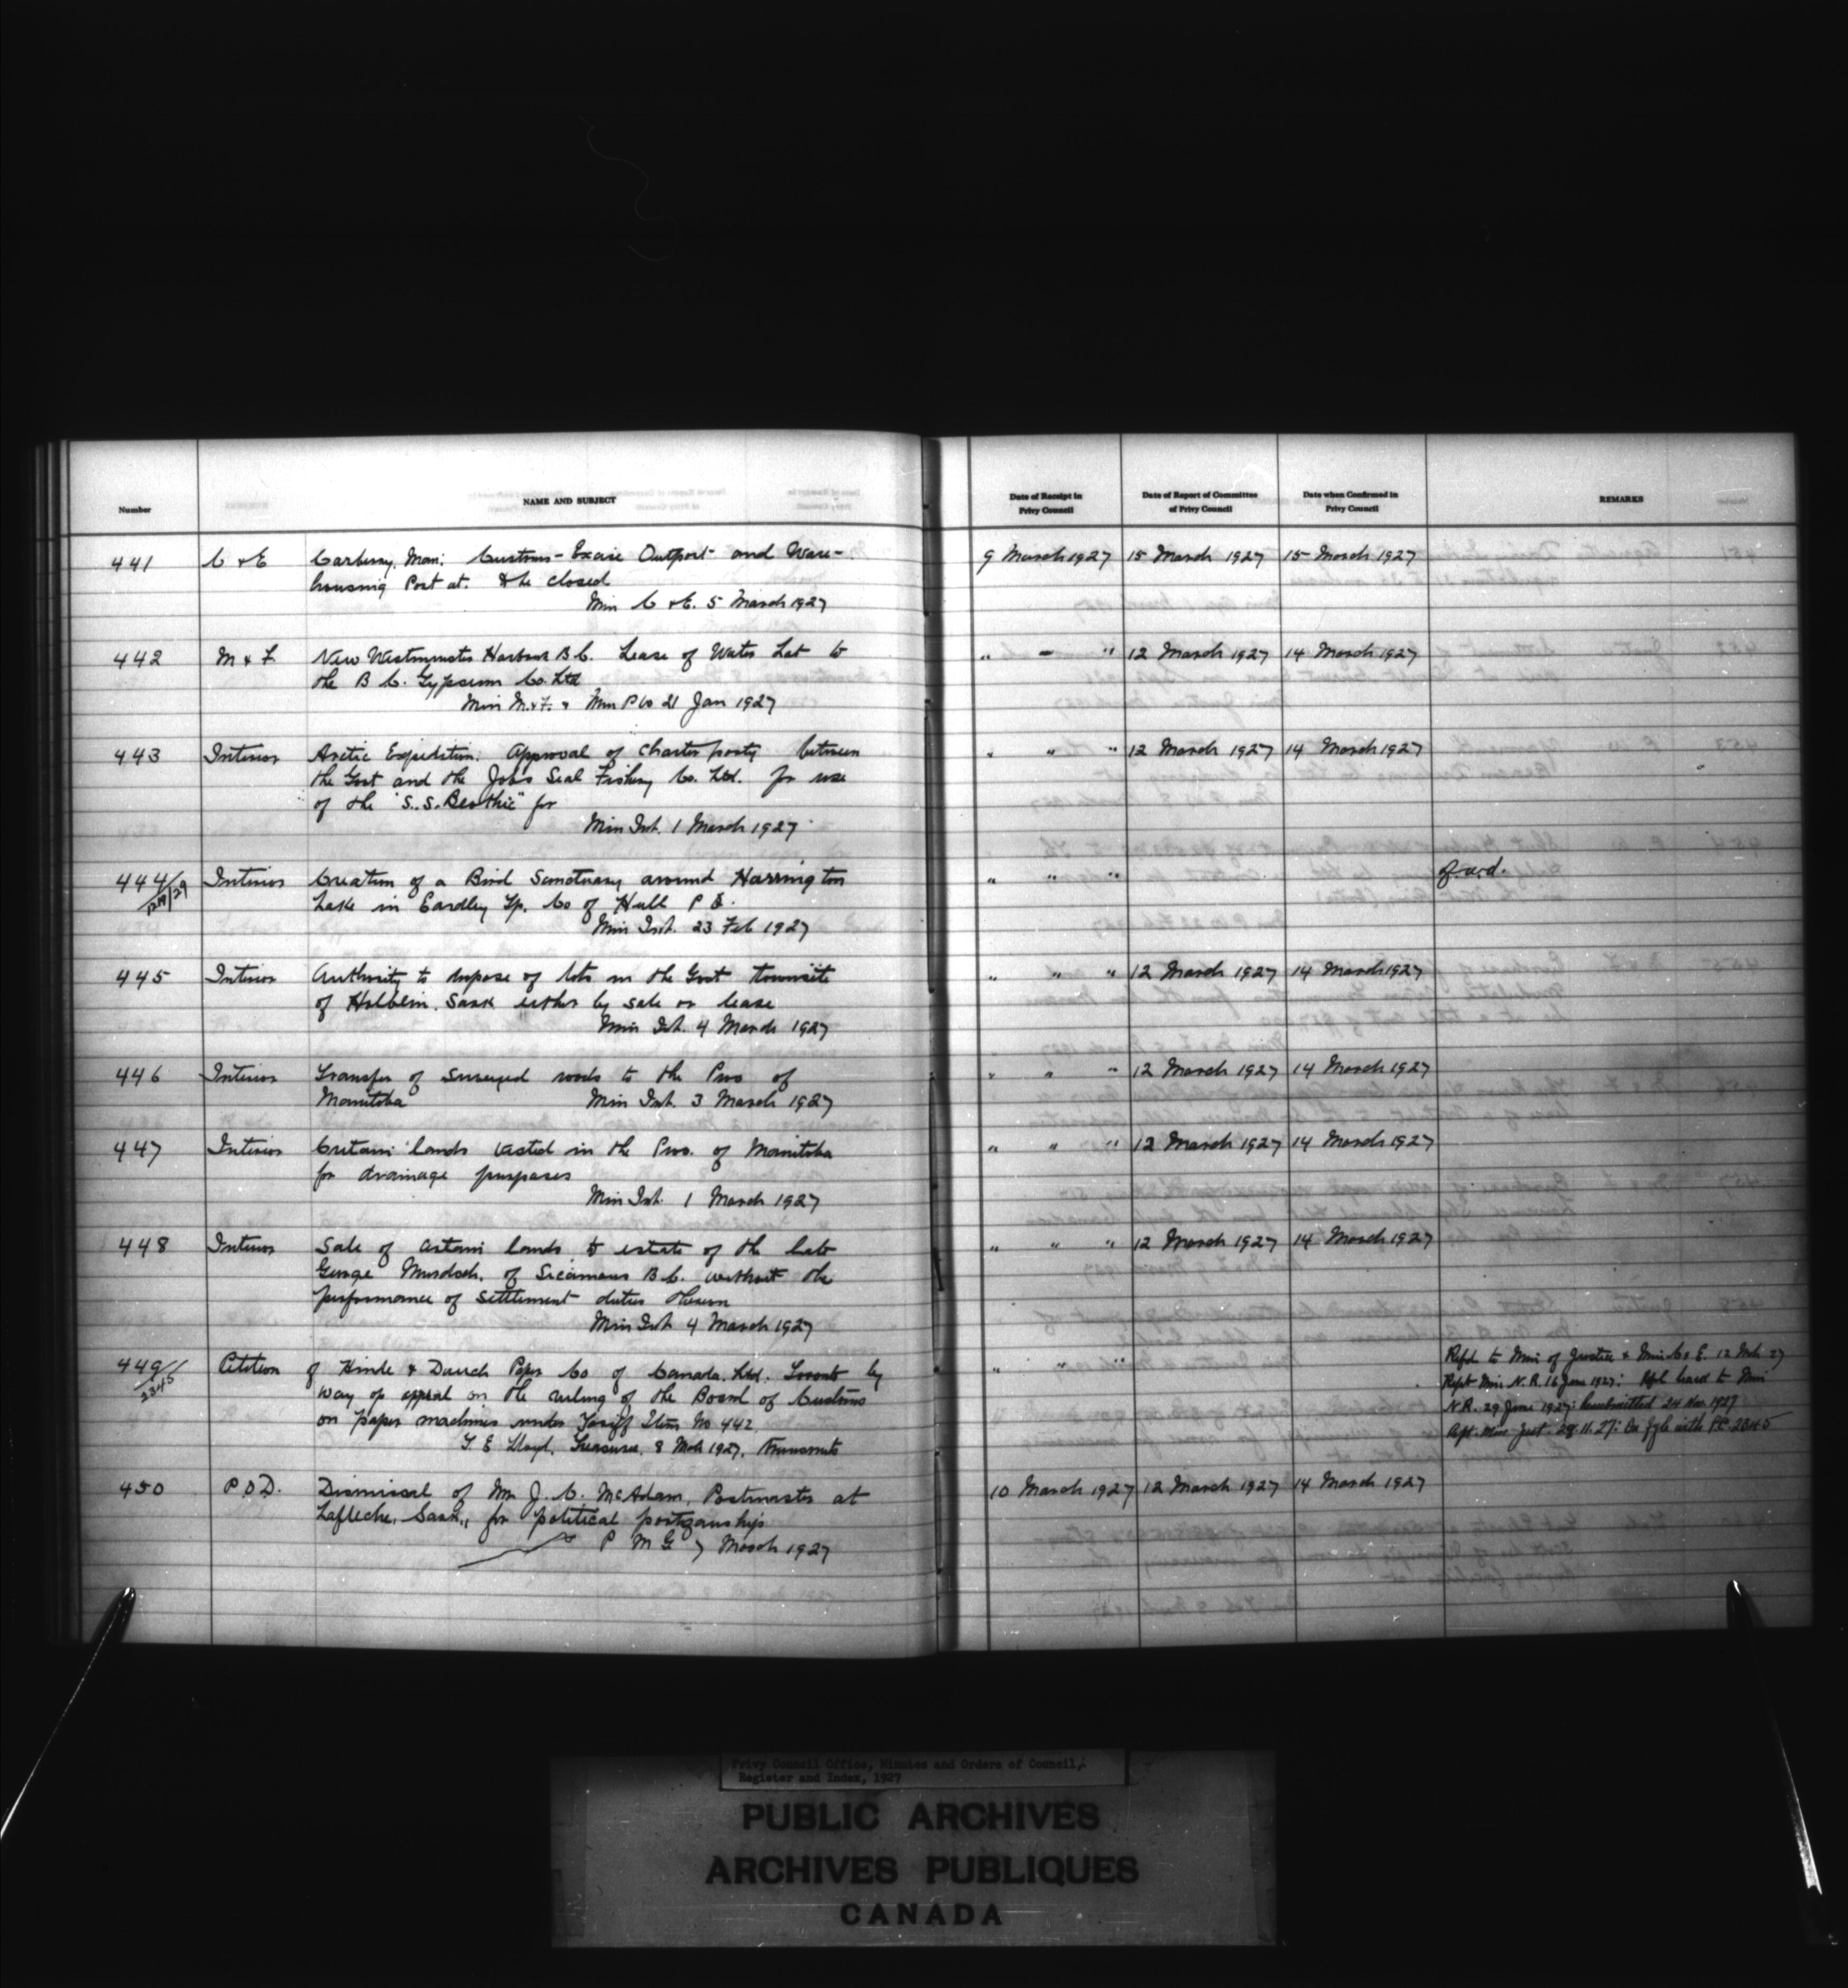 Number
NAME AND SUBJECT
Date of Receipt in
Privy Council
Date of Report of Committee
of Privy Council
Date when Confirmed in
Privy Council
REMARKS
441 C & E Carberry, Man: Customs-Excise Outport and Ware- 9 March 1927 15 March 1927 15 March 1927
housing Port at. to be closed
Min C & E. 5 March 1927
442 M & F. New Westminster Harbour B C. Lease of Water Lot to " " " 12 March 1927 14 March 1927
the B C. Gypsum Co. Ltd
Min M. & F. & Min P W 21 Jan 1927
443 Interior Arctic Expedition. Approval of charter party between " " " 12 March 1927 14 March 1927
the Govt and the Job's Seal Fishery Co. Ltd. for use
of the "S.S. Beothic" for
Min Int. 1 March 1927
444/ Interior Creation of a Bird Sanctuary around Harrington " " "
Lake in Eardley Tp. Co of Hull P Q.
Min Int. 23 Feb 1927
445 Interior Authority to dispose of lots in the Govt townsite " " " 12 March 1927 14 March 1927
of Holbein. Sask either by sale or lease
Min Int. 4 March 1927
446 Interior Transfer of surveyed roads to the Prov of " " " 12 March 1927 14 March 1927
Manitoba Min Int. 3 March 1927
447 Interior Certain lands vested in the Prov. of Manitoba " " " 12 March 1927 14 March 1927
for drainage purposes
Min Int. 1 March 1927
448 Interior Sale of certain lands to estate of the late " " " 12 March 1927 14 March 1927
George Murdoch, of Sicamous B C. without the
performance of settlement duties thereon
Min Int 4 March 1927
449/ Petition of Hinde & Dauch Paper Co of Canada. Ltd. Toronto by " " " Refd to Min of Justice & Min C & E. 12 Mch 27
2345 way of appeal on the ruling of the Board of Customs Rept Min N. R. 16 June 1927: Refd back to Min
on paper machines under Tariff Item No 442 N.R. 29 June 1927: Resubmitted 24 Nov 1927
T. E Lloyd, Treasurer, 8 Mch 1927, Transmits Rpt. Min Just. 28.11.27: On fyle with P.C. 2345
450 P.O.D. Dismissal of Mr J. C. McAdam, Postmaster at 10 March 1927 12 March 1927 14 March 1927
Lafleche, Sask., for political partizanship
P M G 7 March 1927
Privy Council Office, Minutes and Orders of Council,
Register and Index, 1927
PUBLIC ARCHIVES
ARCHIVES PUBLIQUES
CANADA